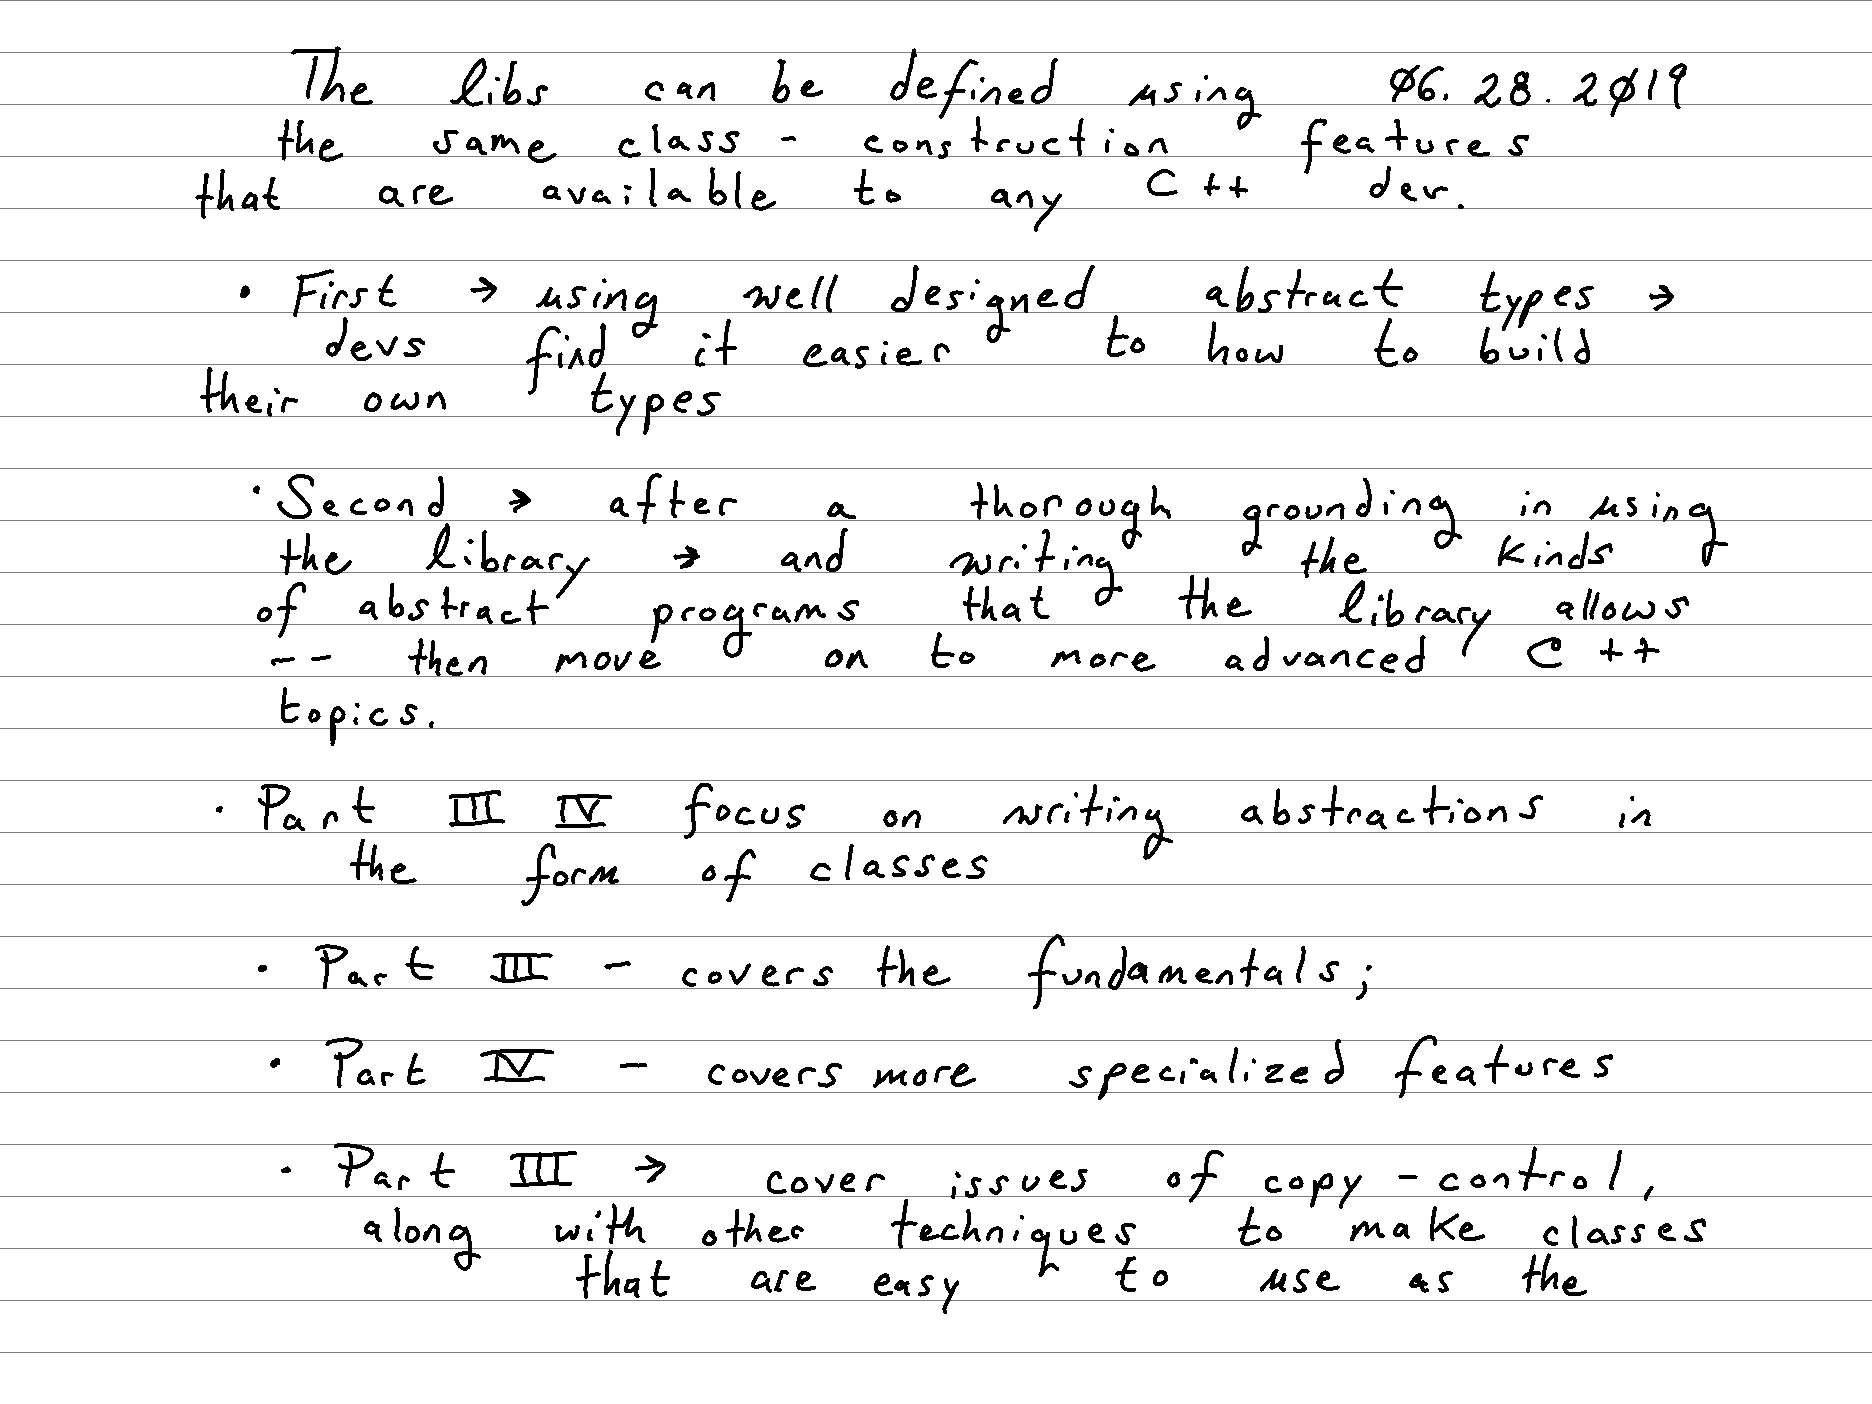 The libs can be defined using 06.28.2019
the same class - construction features
that are available to any C++ dev.
• First → using well designed abstract types →
devs find it easier to how to build
their own types
• Second → after a thorough grounding in using
the library → and writing the kinds
of abstract programs that the library allows
-- then move on to more advanced C++
topics.
• Part III IV focus on writing abstractions in
the form of classes
• Part III - covers the fundamentals;
• Part IV - covers more specialized features
• Part III → cover issues of copy-control,
along with other techniques to make classes
that are easy to use as the